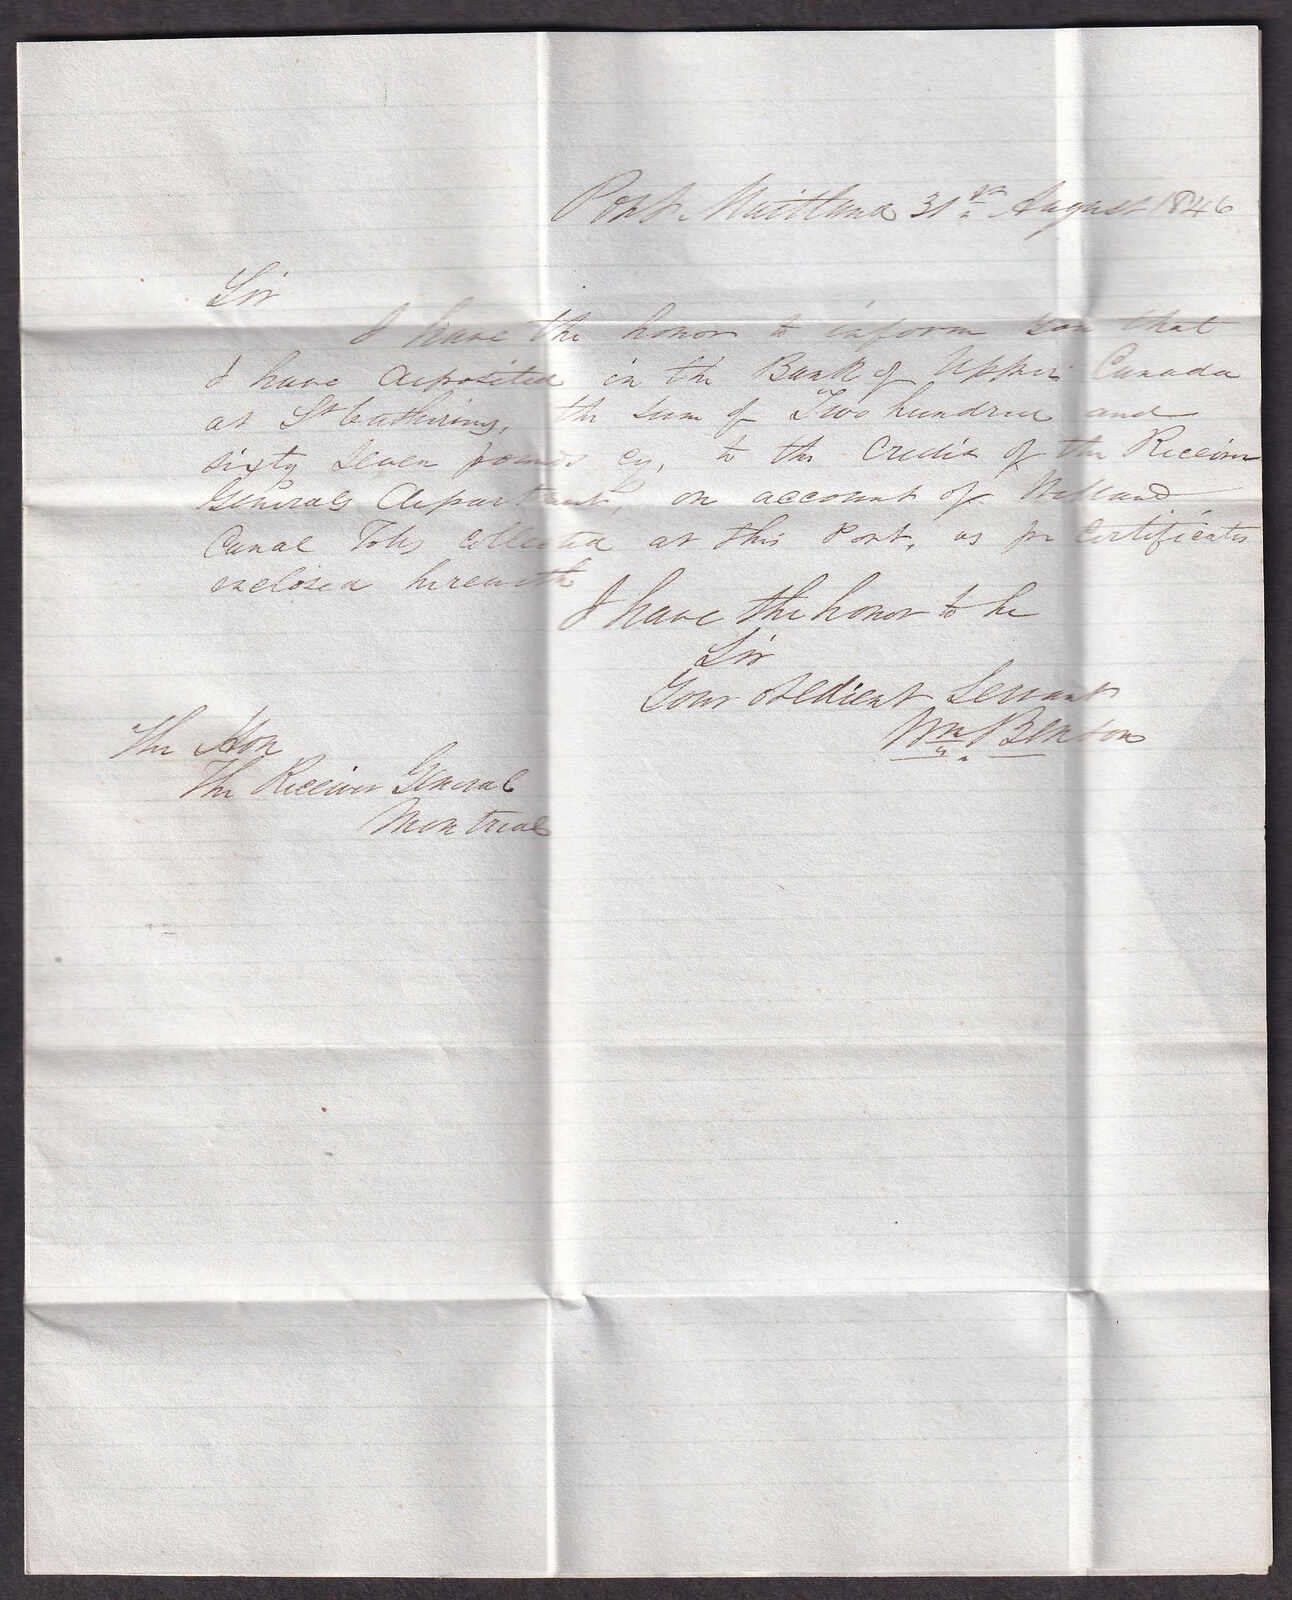 Port Maitland 31st August 1846
Sir
I have the honor to inform you that
I have deposited in the Bank of Upper Canada
at St Catherines, the sum of Two hundred and
sixty seven pounds cy, to the credit of the Receiver
Generals department, on account of Welland
Canal Tolls collected at this Port, as per certificates
enclosed herewith
I have the honor to be
Sir
Your obedient Servant
Wm Benson
The Hon
The Receiver General
Montreal